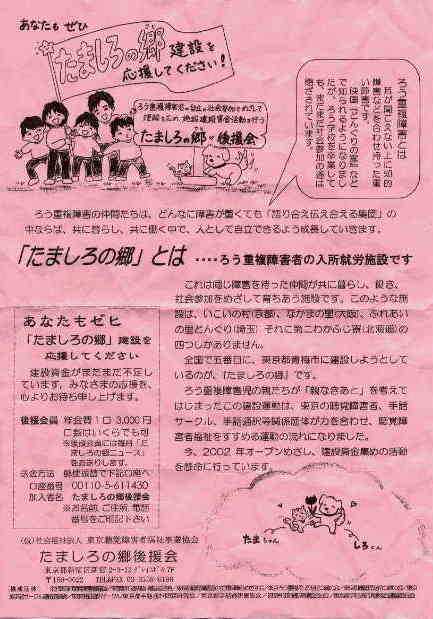 あなたも ぜひ
「たましろの郷」建設を
応援してください!
ろう重複障害者の自立と社会参加をめざして
たましろの郷 後援会
ろう重複障害とは
耳が聞こえない上に知的
障害などを合わせ持った重
い障害です。
映画「どんぐりの家」など
で知られるようになりまし
たが、ろう学校を卒業して
も、まだまだ社会参加の道は
閉ざされています。
ろう重複障害の仲間たちは、どんなに障害が重くても「語り合え伝え合える集団」の
中ならば、共に暮らし、共に働く中で、人として自立できるよう成長していきます。
「たましろの郷」とは ‥‥ろう重複障害者の入所就労施設です
これは同じ障害を持った仲間が共に暮らし、働き、
社会参加をめざして育ちあう施設です。このような施
設は、いこいの村(京都)、なかまの里(大阪)、ふれあい
の里どんぐり(埼玉) それに第二わかふじ寮(北海道)の
四つしかありません。
全国で五番目に、東京都青梅市に建設しようとして
いるのが、「たましろの郷」です。
ろう重複障害児の親たちが「親なきあと」を考えて
はじまったこの建設運動は、東京の聴覚障害者、手話
サークル、手話通訳等関係団体が力を合わせ、聴覚障
害者福祉をすすめる運動の流れになりました。
今、2002 年オープンめざし、建設資金集めの活動
を懸命に行っています。
あなたもゼヒ
「たましろの郷」建設を
応援してください
建設資金がまだまだ不足し
ています。みなさまの応援を、
心よりお待ち申し上げます。
後援会員 年会費1口 3,000円
口数はいくらでも可
※後援会員には毎月「た
ましろの郷ニュース」
をお送りします。
送金方法 郵便振替で下記口座へ
口座番号 00110-5-611430
加入者名 たましろの郷後援会
※お名前、ご住所、電話
番号をご明記下さい
たまちゃん
しろくん
(仮)社会福祉法人 東京聴覚障害者福祉事業協会
たましろの郷後援会